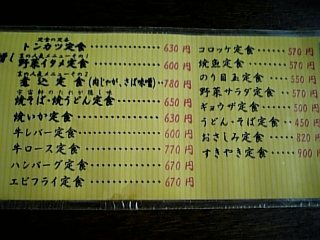 定食の定番
トンカツ定食 630円
野菜イタメ定食 600円
煮込定食(肉じゃが、さば味噌) 780円
焼そば・焼うどん定食 650円
焼いか定食 630円
牛レバー定食 600円
牛ロース定食 770円
ハンバーグ定食 670円
エビフライ定食 670円
コロッケ定食 570円
焼魚定食 570円
のり目玉定食 550円
野菜サラダ定食 570円
ギョウザ定食 500円
うどん・そば定食 450円
おさしみ定食 820円
すきやき定食 900円